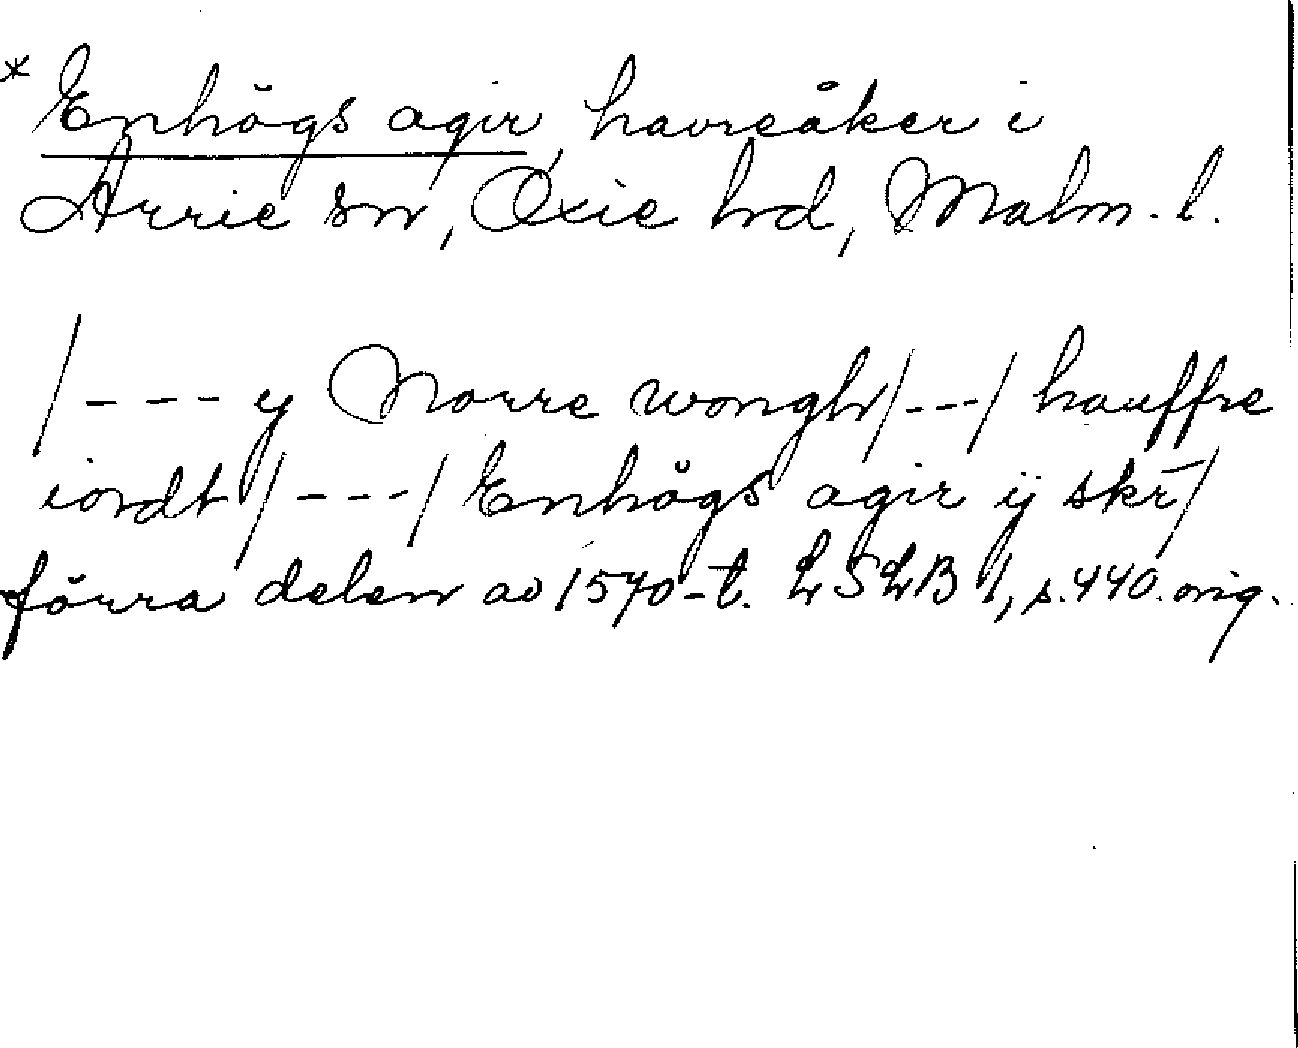 * Enhögs agir, havreåker i
Arrie sn, Oxie hd, Malm. l.
/--- y Norre wongh/--/ hauffre
iordt/---/ Enhögs agir ij skr̄/
förra delen av 1570-t. LSLB 1, s. 440. orig.